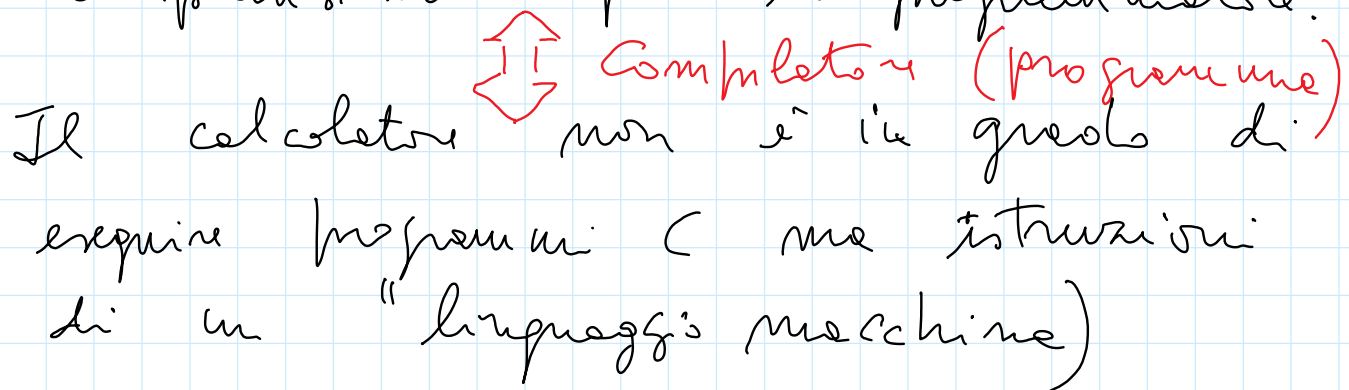 Compilatore (programma)
Il calcolatore non è in grado di
eseguire programmi C ma istruzioni
di un "linguaggio macchina)